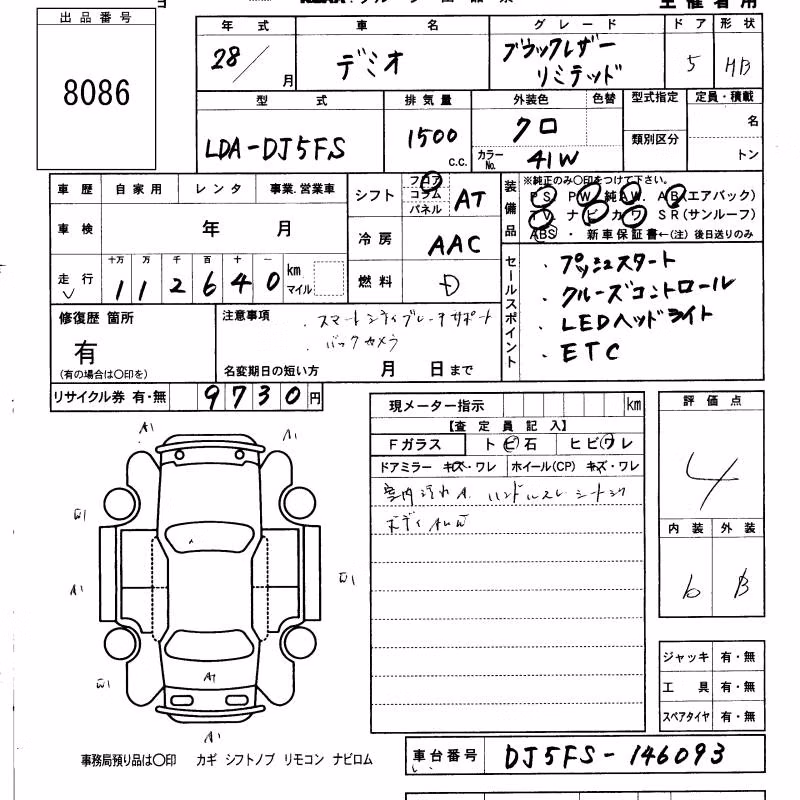 主催者用
出品番号
8086
年式 車名 グレード ドア 形状
28/月 デミオ ブラックレザーリミテッド 5 HB
型式 排気量 外装色 色替 型式指定 定員・積載
LDA-DJ5FS 1500 c.c. クロ 類別区分 名
カラーNo. 41W トン
車歴 自家用 レンタ 事業.営業車
車検 年 月
シフト フロア コラム パネル AT
冷房 AAC
燃料 D
装備品 ※純正のみ○印をつけて下さい。
PS. PW. 純AW. AB(エアバック)
TV ナビ カワ SR(サンルーフ)
ABS ・ 新車保証書←(注) 後日送りのみ
走行 十万 万 千 百 十 一
112640 km マイル
セールスポイント
・プッシュスタート
・クルーズコントロール
・LEDヘッドライト
・ETC
修復歴 箇所
有
(有の場合は○印を)
注意事項
・スマートシティブレーキサポート
バックカメラ
名変期日の短い方 月 日まで
リサイクル券 有・無 9730円
現メーター指示 km
【査定員記入】
Fガラス トビ石 ヒビワレ
ドアミラー キズ・ワレ ホイール(CP) キズ・ワレ
室内汚れA. ハンドルスレ シート
ボディAUW
評価点
4
内装 外装
b B
ジャッキ 有・無
工具 有・無
スペアタイヤ 有・無
A1
A1
W1
A1
W1
W1
A1
A1
事務局預り品は○印 カギ シフトノブ リモコン ナビロム
車台番号 DJ5FS-146093